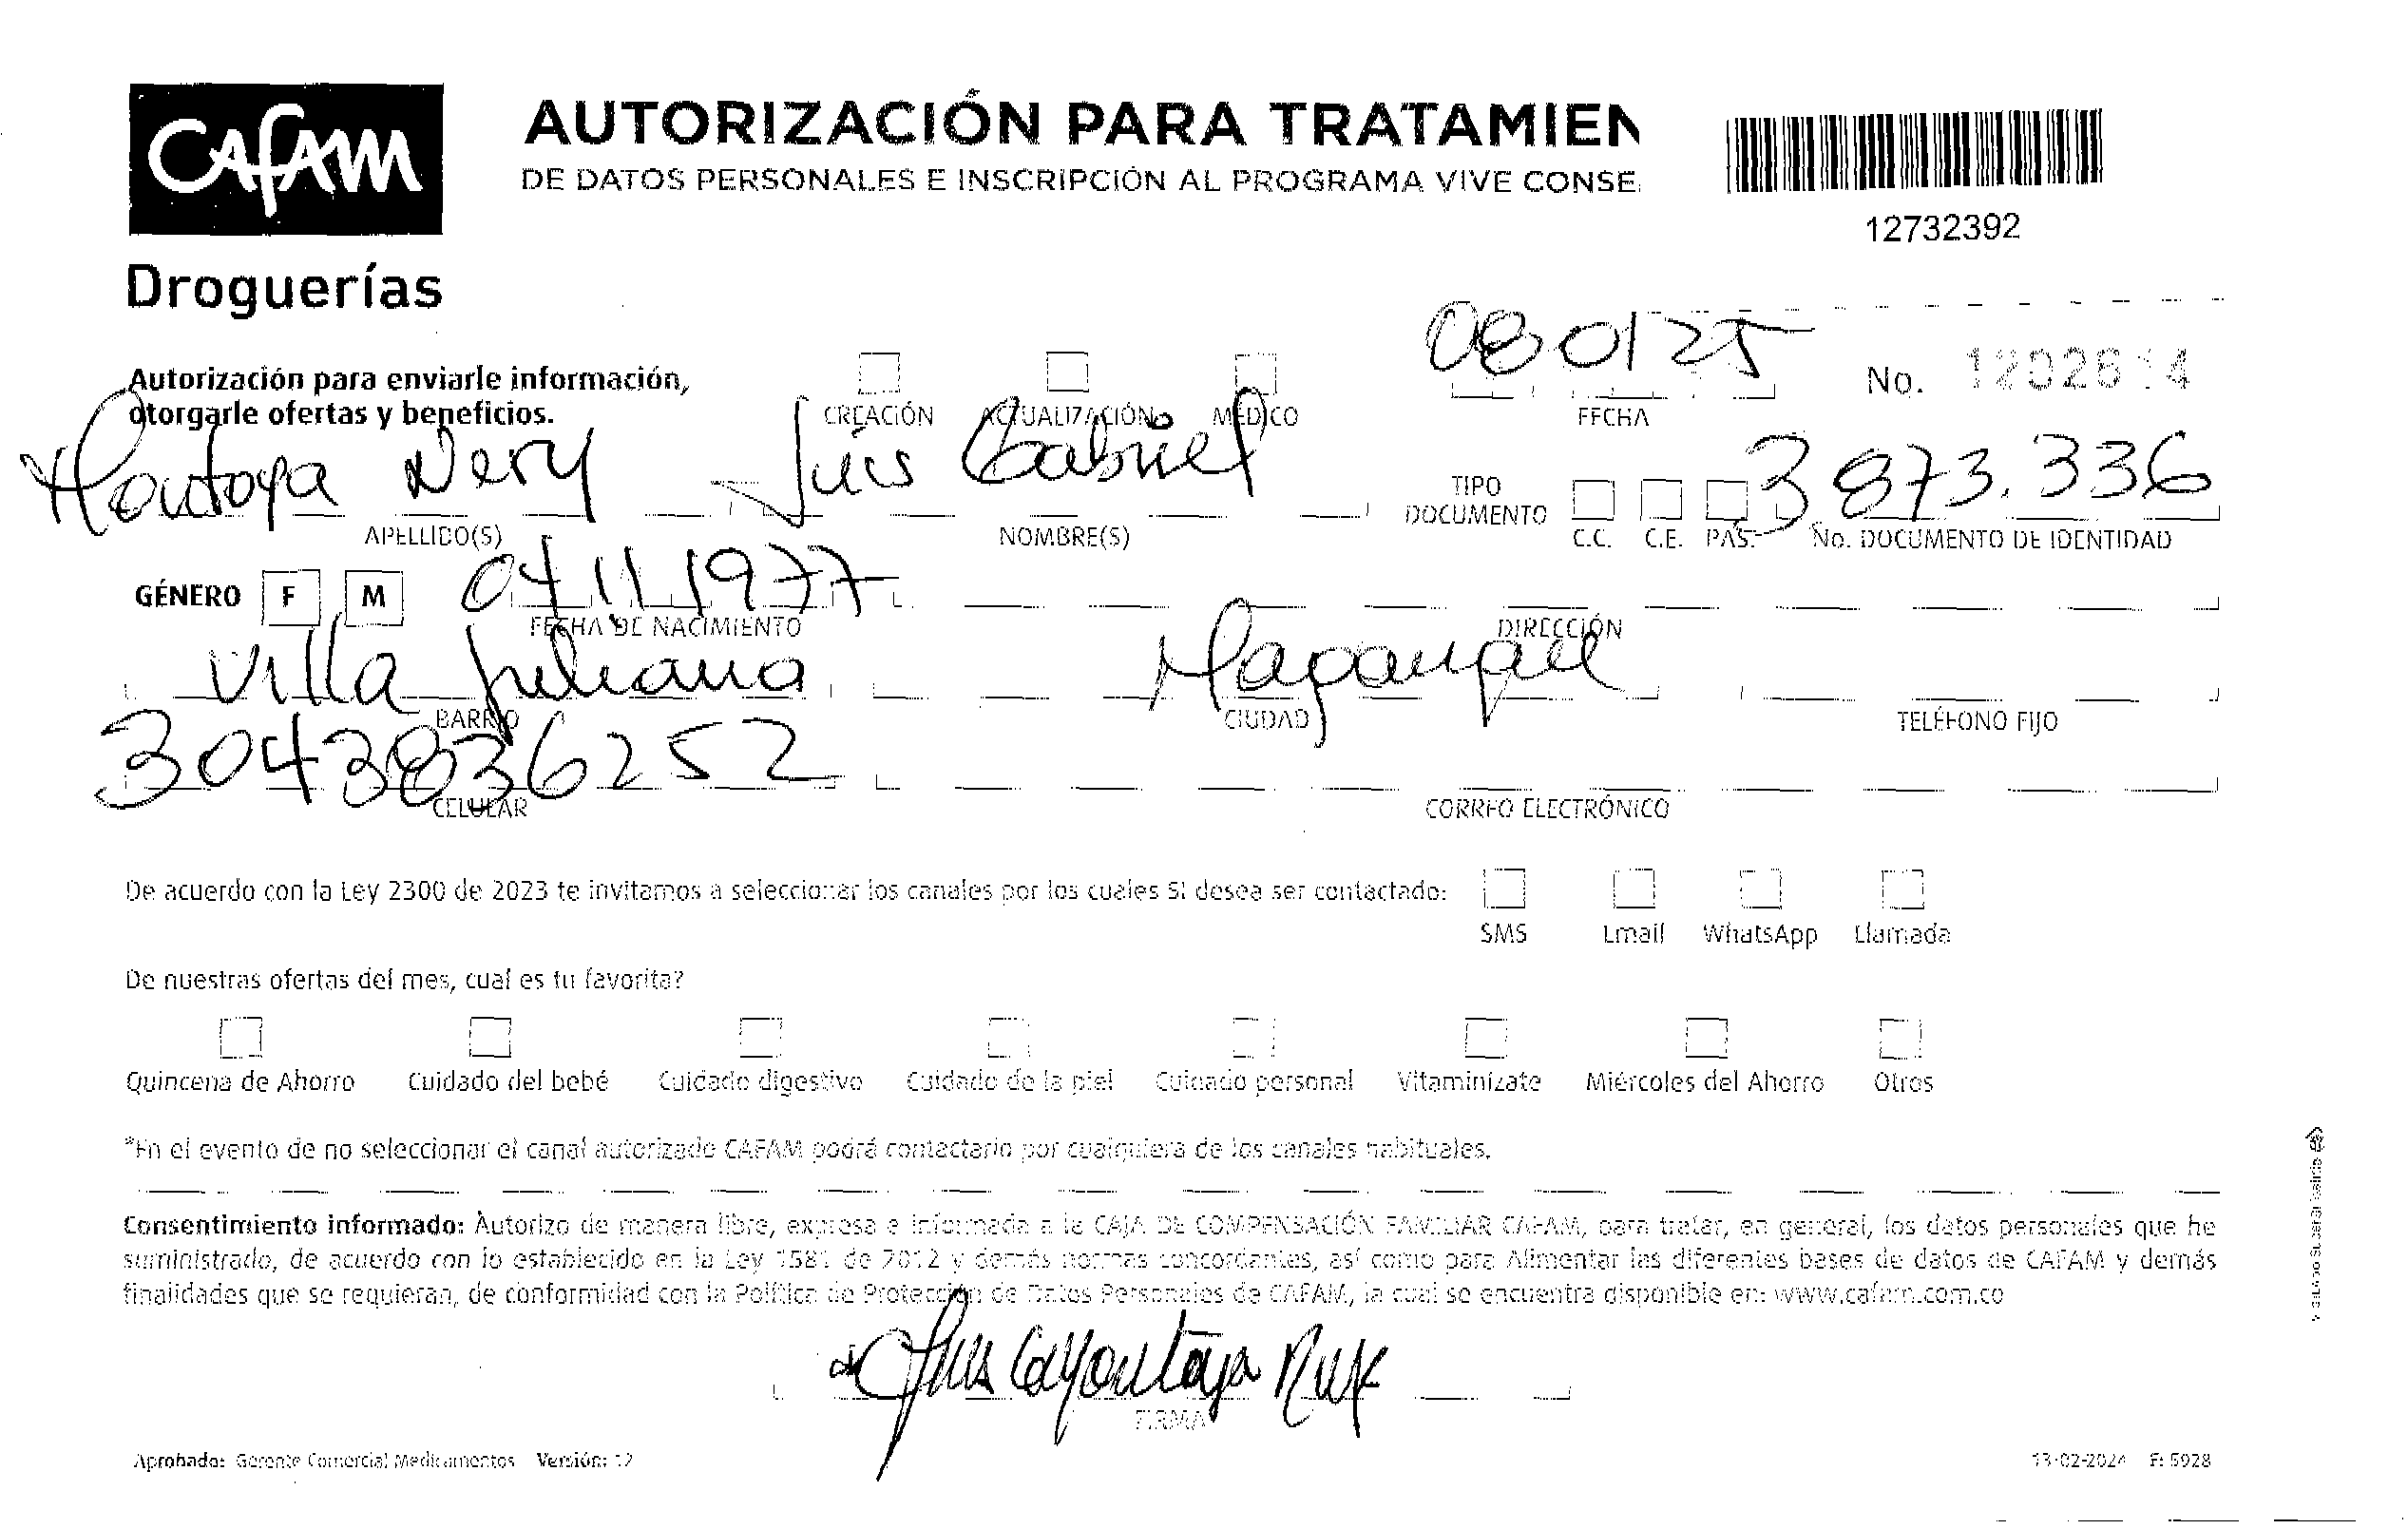 CAFAM
Droguerías
AUTORIZACIÓN PARA TRATAMIEN
DE DATOS PERSONALES E INSCRIPCIÓN AL PROGRAMA VIVE CONSE
12732392
Autorización para enviarle información,
otorgarle ofertas y beneficios.
CREACIÓN ACTUALIZACIÓN MÉDICO
08 01 25
FECHA
No.
Montoya Nery Luis Gabriel
APELLIDO(S) NOMBRE(S)
TIPO
DOCUMENTO
C.C. C.E. PAS.
3 873.336
No. DOCUMENTO DE IDENTIDAD
GÉNERO F M 04 11 1977
FECHA DE NACIMIENTO DIRECCIÓN
Villa Juliana Magangué
BARRIO CIUDAD TELÉFONO FIJO
3043836252
CELULAR CORREO ELECTRÓNICO
De acuerdo con la Ley 2300 de 2023 te invitamos a seleccionar los canales por los cuales SI desea ser contactado:
SMS Email WhatsApp Llamada
De nuestras ofertas del mes, cual es tu favorita?
Quincena de Ahorro Cuidado del bebé Cuidado digestivo Cuidado de la piel Cuidado personal Vitaminízate Miércoles del Ahorro Otros
*En el evento de no seleccionar el canal autorizado CAFAM podrá contactarlo por cualquiera de los canales habituales.
Consentimiento informado: Autorizo de manera libre, expresa e informada a la CAJA DE COMPENSACIÓN FAMILIAR CAFAM, para tratar, en general, los datos personales que he
suministrado, de acuerdo con lo establecido en la Ley 1581 de 2012 y demás normas concordantes, así como para Alimentar las diferentes bases de datos de CAFAM y demás
finalidades que se requieran, de conformidad con la Política de Protección de Datos Personales de CAFAM, la cual se encuentra disponible en: www.cafam.com.co
Luis Montoya
FIRMA
Aprobado: Gerente Comercial Medicamentos Versión: 12
13-02-2024 F: 5928